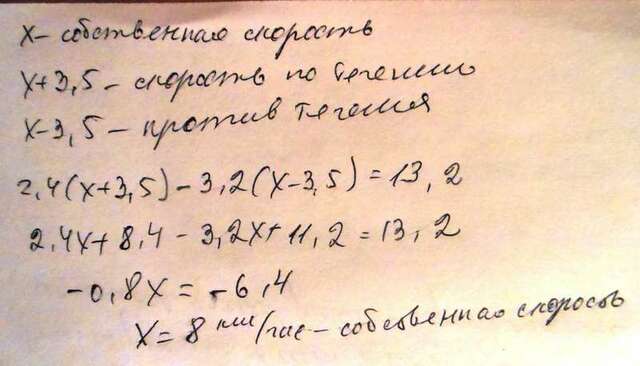 x – собственная скорость
x+3,5 – скорость по течению
x–3,5 – против течения
2,4(x+3,5) – 3,2(x–3,5) = 13,2
2,4x + 8,4 – 3,2x + 11,2 = 13,2
–0,8x = –6,4
x = 8 км/час – собственная скорость